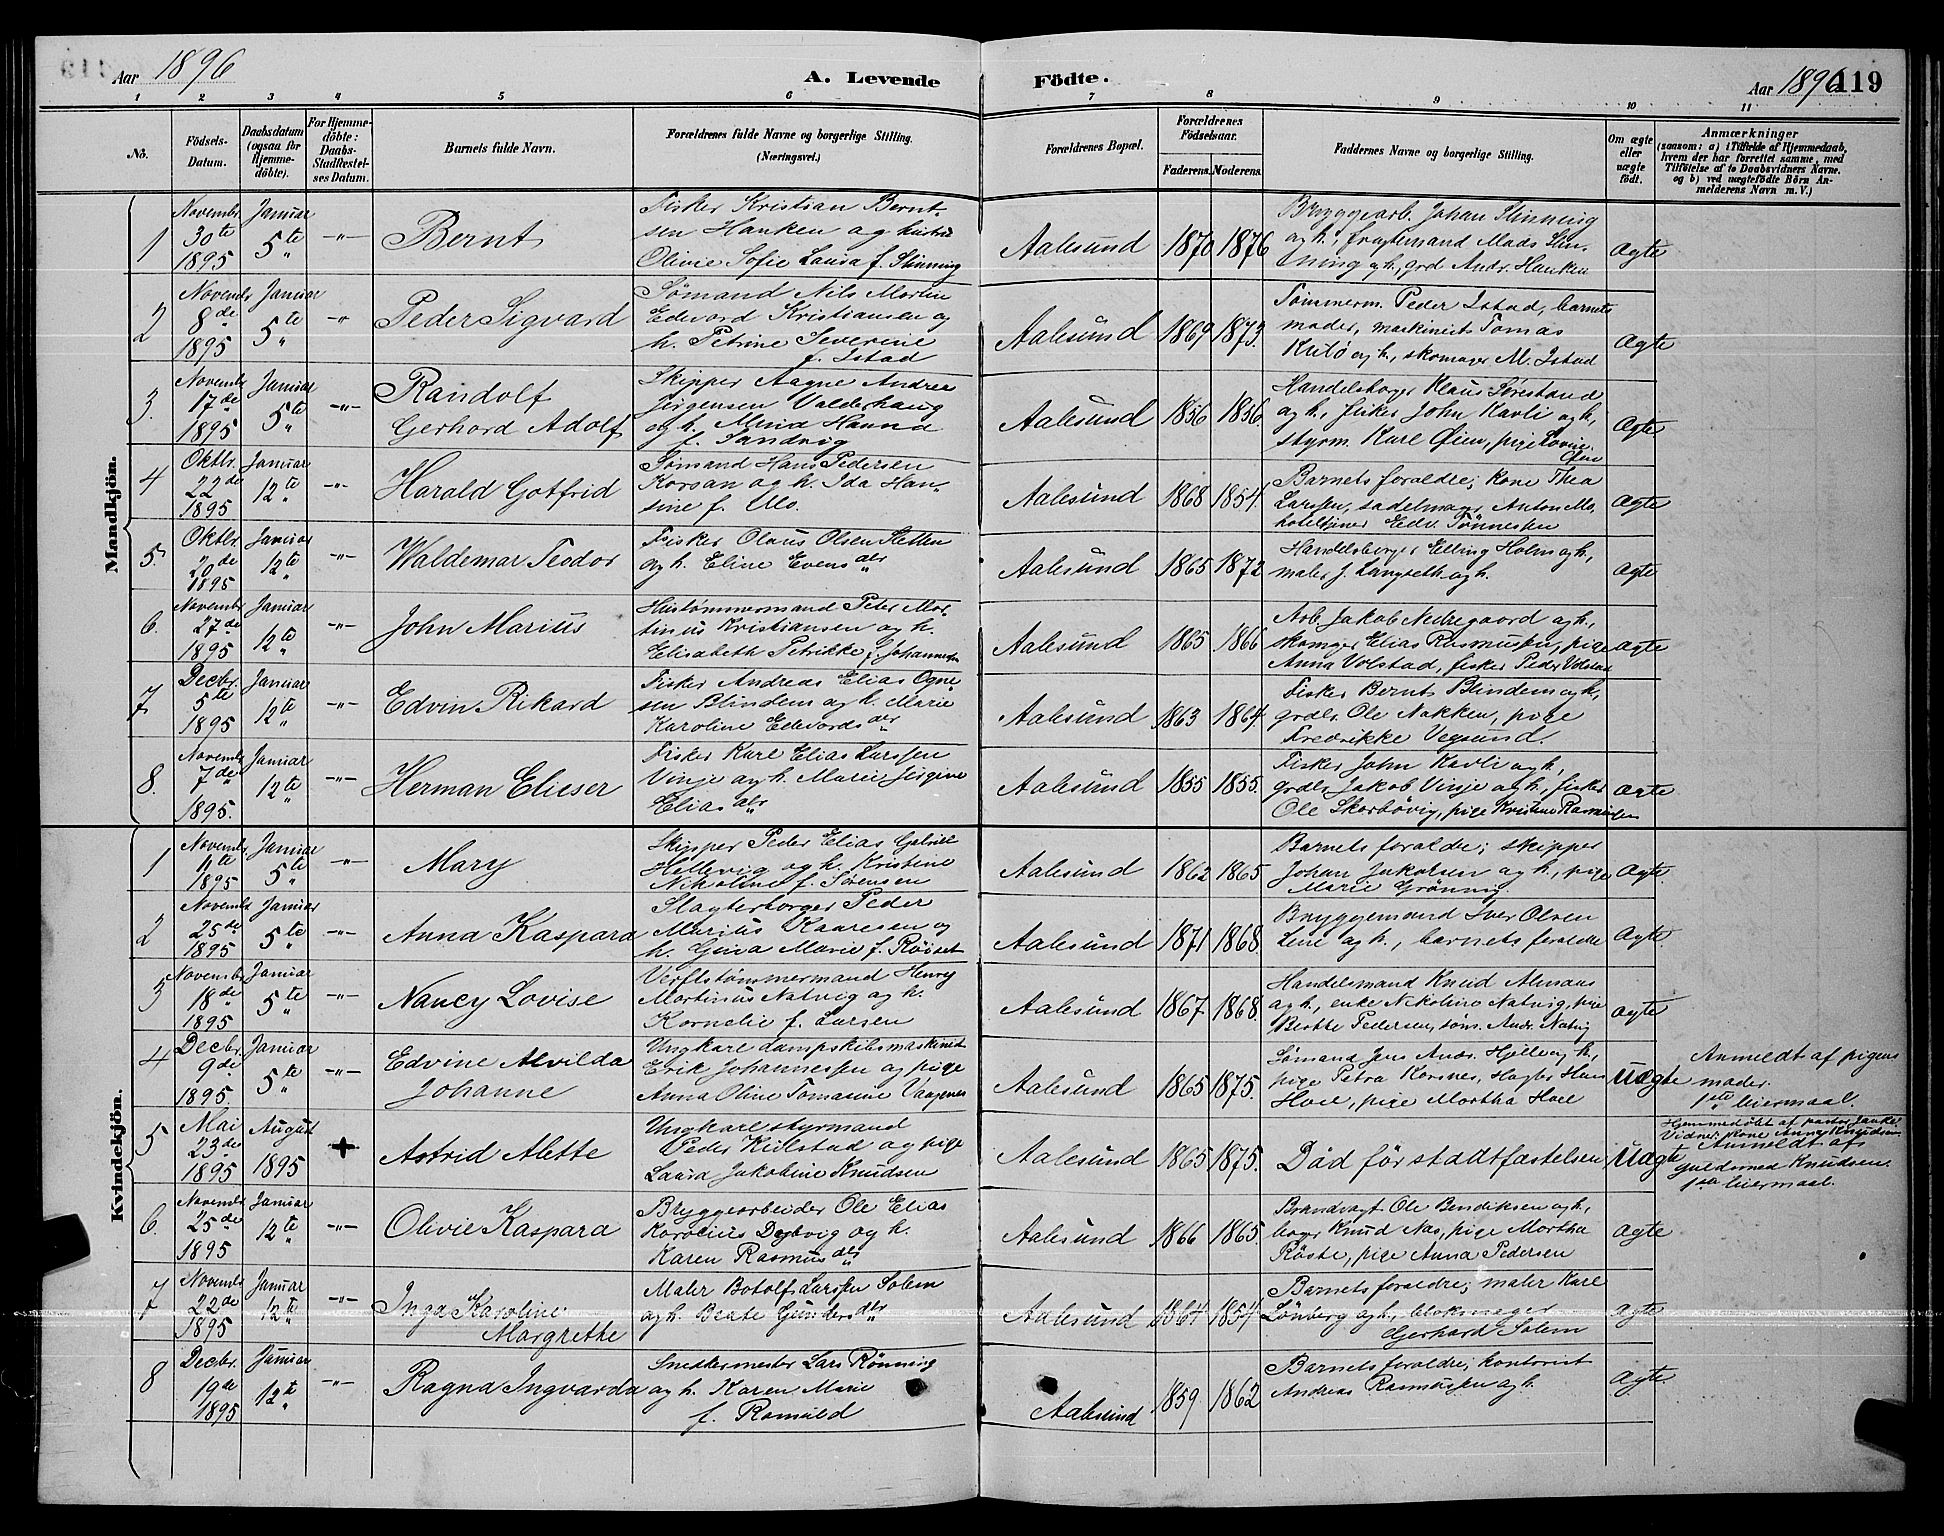 Aar 1896
A. Levende Födte.
Aar 1896 119
1 2 3 4 5 6 7 8 9 10 11
No.
Födsels-Datum.
Daabsdatum (ogsaa for Hjemmedöbte).
For Hjemmedöbte: Daabs-Stadfæstelses Datum.
Barnets fulde Navn.
Forældrenes fulde Navne og borgerlige Stilling. (Næringsvei.)
Forældrenes Bopæl.
Forældrenes Födselsaar.
Faderens. Moderens.
Faddernes Navne og borgerlige Stilling.
Om ægte eller uægte födt.
Anmærkninger
(saasom: a) i Tilfælde af Hjemmedaab,
hvem der har forrettet samme, med
Tilföielse af to Daabsvidners Navne.
og b) ved uægtefödte Börn Anmelderens Navn m. V.)
Mandkjön.
1 Novembr 30te 1895 Januar 5te -"- Bernt
Fisker Kristian Berntsen Hanken og hustru
Olivie Sofie Laura f. Slinning
Aalesund 1870 1876
Bryggearb. Johan Slinning
og h., fragtemand Mads Slinning
og h., grd Andr. Hanken
Ægte
2 Novembr 8de 1895 Januar 5te " Peder Sigvard
Sømand Nils Martin
Edvard Kristiansen og
h. Petrine Severine
f. Istad
Aalesund 1869 1873.
Tømmerm. Peder Istad, barnets
moder, maskinist Tomas
og h., skomager M. Istad
Ægte
3. Novembr 17de 1895 Januar 5te -"- Randolf
Gerhard Adolf
Skipper Aagne Andrea
Jørgensen Valderhaug
og h. Hanna
f. Sandvig
Aalesund 1856 1856
Handelsborger Klaus Sørestrand
og h., fisker John Kavli og h,
styrm. Karl Øien, pige Lovise
Øien
Ægte
4 Oktbr. 22de 1895 Januar 12te -"- Harald Gotfrid
Sømand Hans Pedersen
Korsan og h. Ida Hansine
f. Mo.
Aalesund 1868 1854.
Barnets forældre; kone Thea
Larssen, sadelmager Anton Mo,
hoteltjener Edv. Tønnessen
Ægte
5. Oktbr. 20de 1895 Januar 12te -"- Waldemar Teodor
Fisker Olaus Olsen Sletten
og h. Eline Evensdtr
Aalesund 1865 1872
Handelsborger Elling Holm og h.,
maler J. Langseth og h.
Ægte
6. Novembr 27de 1895 Januar 12te -"- John Marius
Hustømmermand Peter Martinius
Kristiansen og h.
Elisabeth Petrikke f. Johannessen
Aalesund 1865 1866
Arb. Jakob Nedregaard og h.,
skomager Elias Rasmussen, pige
Anna Volstad, fisker Peder Volstad
Ægte
7 Decbr. 5te 1895 Januar 12te -"- Edvin Rikard
Fisker Andreas Elias Ognesen
Blindem og h. Marie
Karoline Edvardsdtr
Aalesund 1863 1864.
Fisker Bernt Blindem og h.,
grdbr. Ole Nakken, pige
Fredrikke Vegsund.
Ægte
8. Novembr 7de 1895. Januar 12te -"- Herman Elieser
Fisker Karl Elias Larssen
Vinje og h. Marie Jørgine
Eliasdtr
Aalesund 1855 1855.
Fisker John Kavli og h.,
grdbr. Jakob Vinje og h., fisker
Ole Skorbøvig, pige Kristine Rasmussen
Ægte
Kvindekjön.
1 Novembr 11te 1895 Januar 5te -"- Mary
Skipper Peder Elias Gabriel
Hellevig og h. Kristine
Nikoline f. Sørensen
Aalesund 1862 1865
Barnets forældre; skipper
Johan Jakobsen og h., pige
Marie Grønning
Ægte.
2 Novembr 25de 1895 Januar 5te -"- Anna Kaspara
Slagterborger Peder
Marius Kaaresen og
h. Gina Marie f. Röiset
Aalesund 1871 1868.
Bryggemand Iver Olsen
Leine og h., barnets forældre
Ægte.
3 Novembr 18de 1895 Januar 5te -"- Nancy Lovise
Verftstømmermand Henry
Martinus Natvig og h.
Kornelie f. Larsen
Aalesund 1867. 1868.
Handelsmand Knud Alnæs
og h., enke Nikoline Natvig, pige
Berthe Pedersen, tøm. Andr. Natvig
Ægte
4 Decbr. 9de 1895. Januar 5te -"- Edvine Alvilda
Johanne
Ungkarl dampskibsmaskinist
Erik Johannessen og pige
Anna Oline Tomasine Vaagenes
Aalesund 1865 1875.
Sømand Jens Andr. Hjelle og h.,
pige Petra Korsnes, slagter Hans
Hoel, pige Martha Hoel
Uægte
Anmeldt af pigens
moder.
1ste leiermaal.
5 Mai 23de 1895 August 1895 + Astrid Alette
Ungkarl styrmand
Peder Kielstad og pige
Laura Jakobine Knudsen
Aalesund 1865 1875.
Död för stadtfæstelsen
Uægte
Hjemmedöbt af pastor Janke.
Vidner: kone Anna Knudsen
Anmeldt af
guldsmed Knudsen.
1ste leiermaal.
6. Novembr 25de 1895 Januar 12te -"- Olivie Kaspara
Bryggearbeider Ole Elias
Karolius Dybvig og h.
Karen Rasmusdtr
Aalesund 1866 1865.
Brandvagt Ole Bendiksen og h.,
Knud Næs, pige Martha
Röste, pige Anna Pedersen
Ægte
7 Novembr 22de 1895 Januar 12te -"- Inga Karoline
Margrethe
Maler Botolf Larssen Solem
og h. Beate Gundersdtr
Aalesund 1864 1854
Barnets forældre; maler Karl
Lønberg og h., blokmager
Gerhard Solem
Ægte
8 Decbr. 19de 1895 Januar 12te -"- Ragna Ingvarda
Snedkermester Lars Rønning
og h. Karen Marie
f. Romuld
Aalesund 1859 1862
Barnets forældre; kontorist
Andreas Rasmussen og h.
Ægte.